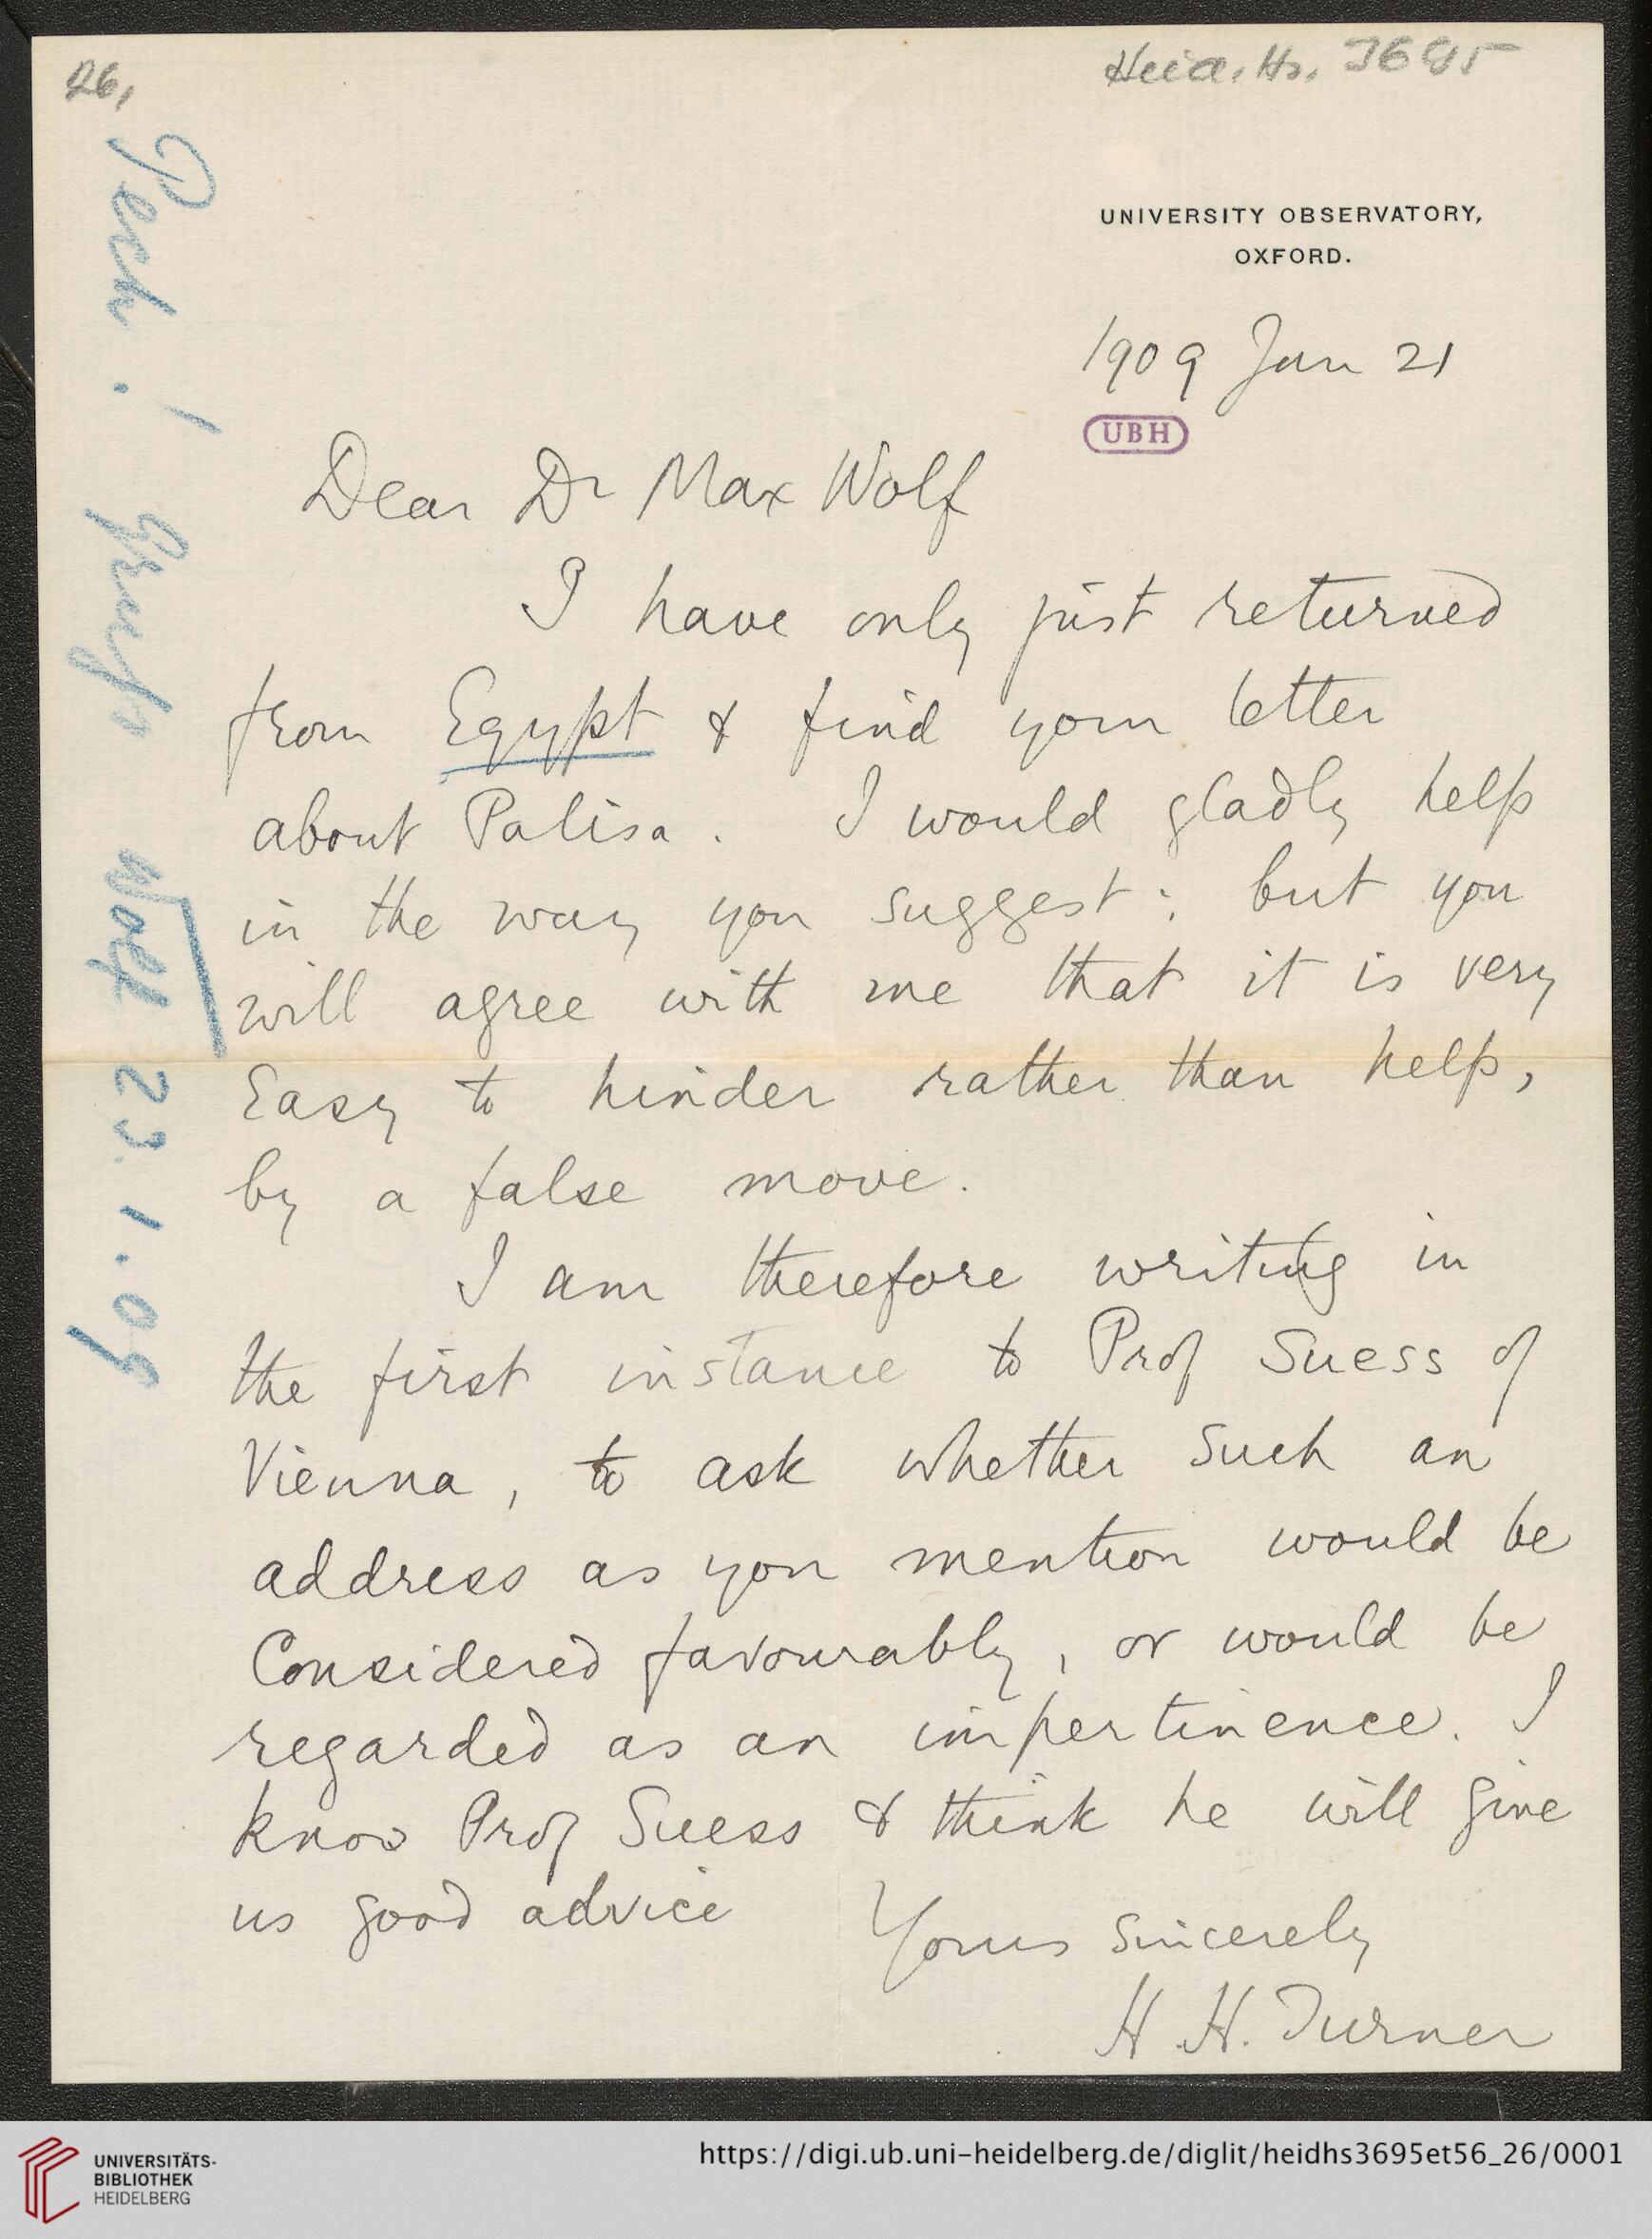 26,
Heid. Hs. 3695
UNIVERSITY OBSERVATORY,
OXFORD.
1909 Jan 21
UBH
Dear Dr Max Wolf
I have only just returned
from Egypt & find your letter
about Palisa. I would gladly help
in the way you suggest: but you
will agree with me that it is very
Easy to hinder rather than help,
by a false move.
I am therefore writing in
the first instance to Prof Suess of
Vienna, to ask whether such an
address as you mention would be
Considered favourably, or would be
regarded as an impertinence. I
know Prof Suess & think he will give
us good advice
Yours sincerely
H. H. Turner
Pech! Gruß Wolf 23.1.09
UNIVERSITÄTS-
BIBLIOTHEK
HEIDELBERG
https://digi.ub.uni-heidelberg.de/diglit/heidhs3695et56_26/0001